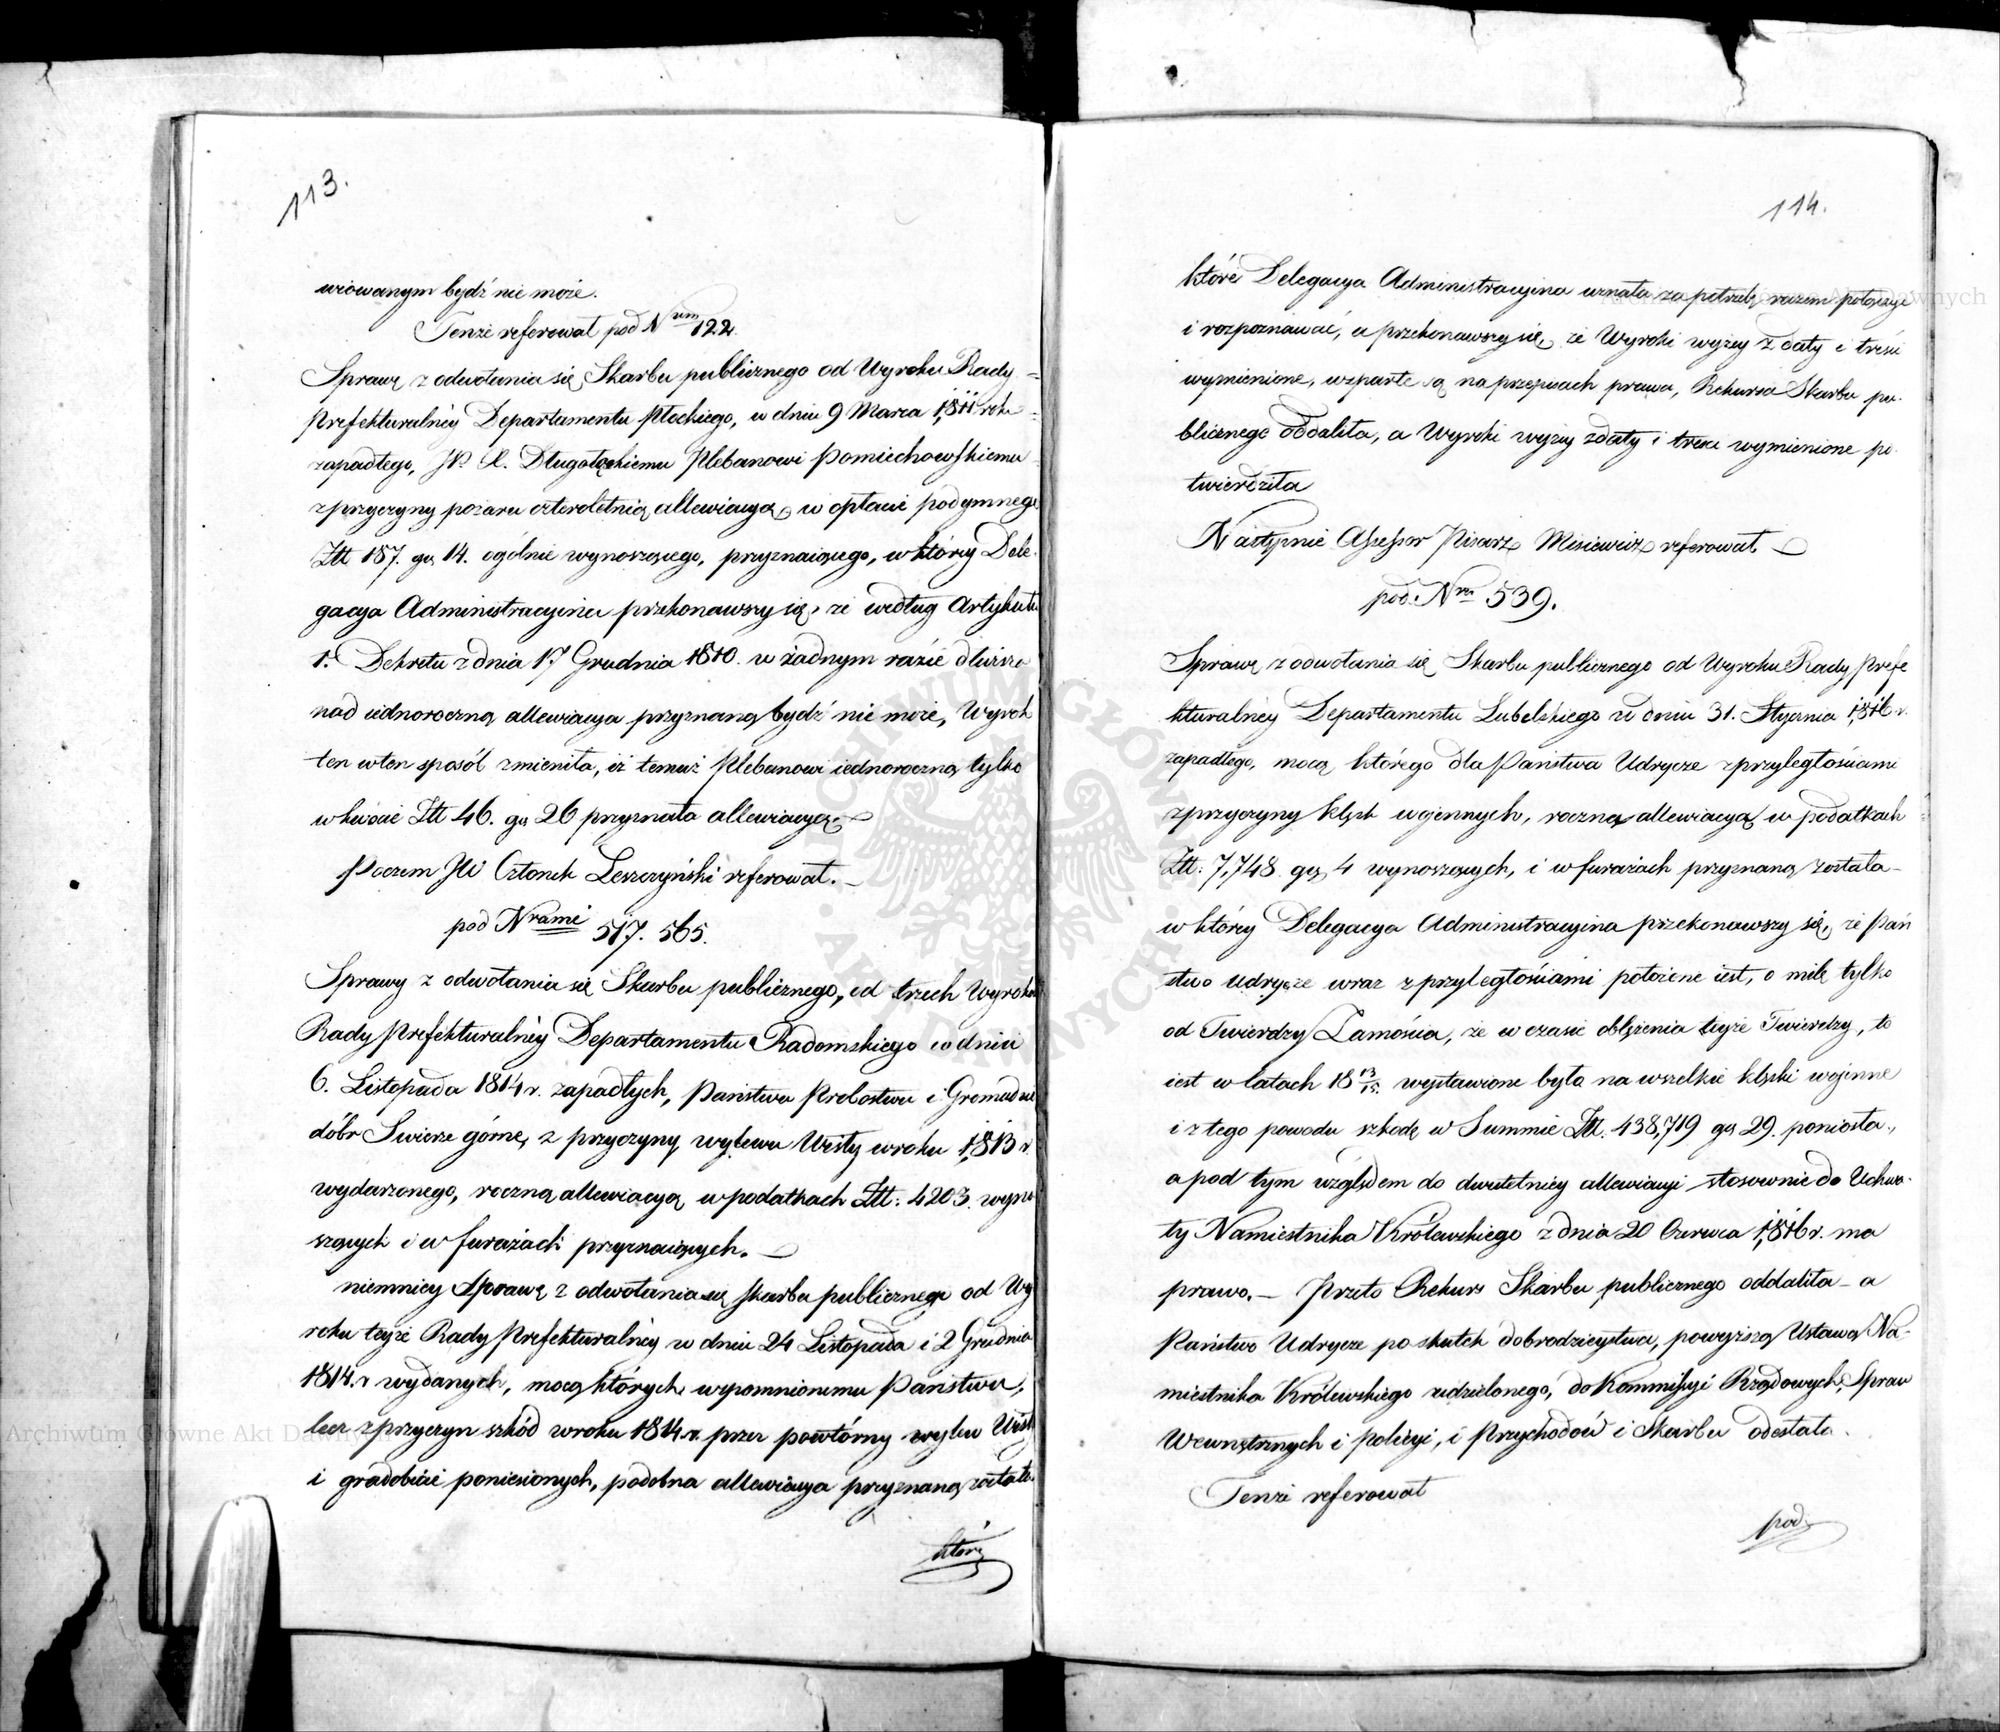 113.
wiowanym bydź nie może.
Tenże referował pod Nrum 122.
Sprawę z odwołania się Skarbu publicznego od Wyroku Rady
Prefekturalney Departamentu Płockiego, w dniu 9 Marca 1811 roku
zapadłego, JP. X. Długołęckiemu Plebanowi Pomiechowskiemu
z przyczyny pożaru czteroletnią allewiacyą w opłacie podymnego
Złt 187. gr 14. ogólnie wynoszącego, przyznaiącego, w którey Dele-
gacya Administracyina przekonawszy się, że według Artykułu
1. Dekretu z dnia 17 Grudnia 1810. w żadnym razie dłuższa
nad iednoroczną allewiacya przyznaną bydź nie może, Wyrok
ten w ten sposób zmieniła, iż temuż Plebanowi iednoroczną tylko
w kwocie Złt 46. gr 26 przyznała allewiacyą.
Poczem JW Członek Leszczyński referował.
pod Nrami 517. 565.
Sprawy z odwołania się Skarbu publicznego, od trzech Wyroków
Rady Prefekturalney Departamentu Radomskiego w dniu
6. Listopada 1814 r. zapadłych, Państwu Probostwu i Gromadom
dóbr Swierze górne, z przyczyny wylewu Wisły w roku 1813 r.
wydarzonego, roczną allewiacyą w podatkach Złt: 4203. wyno-
szących i w furażach przyznaiących.
niemniey Sprawę z odwołania się Skarbu publicznego od Wy
roku teyże Rady Prefekturalney w dniu 24 Listopada i 2 Grudnia
1814. r wydanych, mocą których wspomnionemu Państwu,
lecz z przyczyn szkód w roku 1814 r. przez powtórny wylew Wisły
i gradobicie poniesionych, podobna allewiacya przyznaną została.
które
114.
które Delegacya Administracyina uznała za potrzebę razem połączyć
i rozpoznawać, a przekonawszy się, że Wyroki wyżey z daty i treści
wymienione, wsparte są na przepisach prawa, Rekursa Skarbu pu-
blicznego oddaliła, a Wyroki wyżey z daty i treści wymienione po-
twierdziła
Następnie Assessor Pisarz Misiewicz referował
pod Nrm 539.
Sprawę z odwołania się Skarbu publicznego od Wyroku Rady Prefe
kturalney Departamentu Lubelskiego w dniu 31. Stycznia 1816 r.
zapadłego, mocą którego dla Państwa Udrycze z przyległościami
z przyczyny klęsk wojennych, roczną allewiacyą w podatkach
Złt: 7,748 gr 4 wynoszących, i w furażach przyznaną została
w którey Delegacya Administracyina przekonawszy się, że Pań
stwo Udrycze wraz z przyległościami położone iest, o milę tylko
od Twierdzy Zamościa, że w czasie oblężenia teyże Twierdzy, to
iest w latach 18 13/15. wystawione było na wszelkie klęski wojenne
i z tego powodu szkodę w Summie Złt. 438,719 gr 29. poniosła,
a pod tym względem do dwuletniey allewiacyi stosownie do Uchwa-
ły Namiestnika Królewskiego z dnia 20 Czerwca 1816 r. ma
prawo. — Przeto Rekurs Skarbu publicznego oddaliła — a
Państwo Udrycze po skutek dobrodzieystwa, powyższą Ustawą Na-
miestnika Królewskiego udzielonego, do Kommissyi Rządowych, Spraw
Wewnętrznych i Policyi, i Przychodów i Skarbu odesłała.
Tenże referował
pod